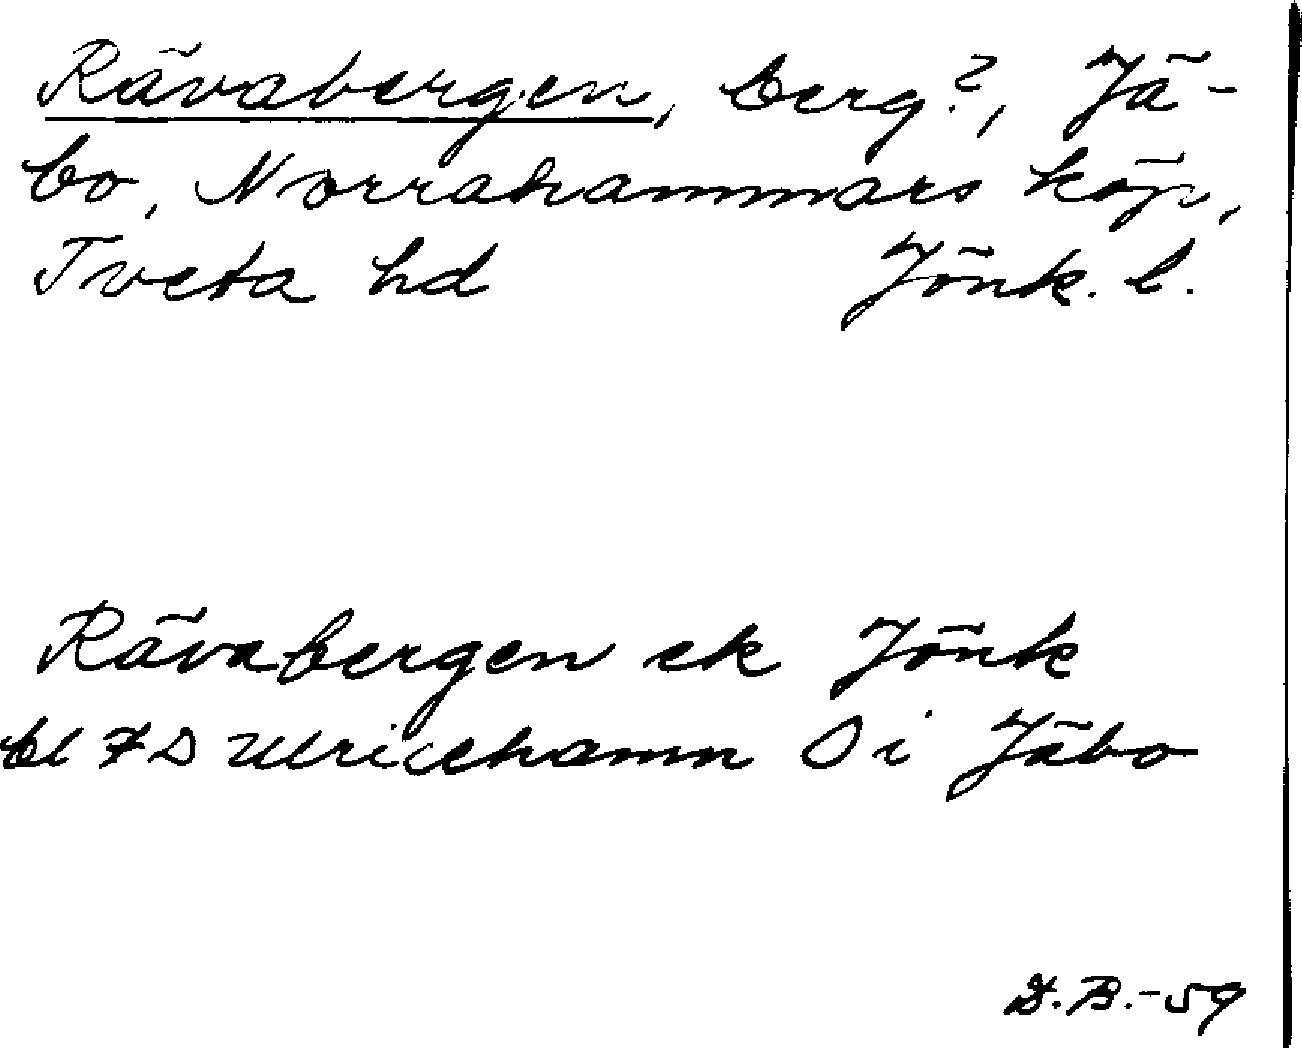 Rävabergen, berg?, Jä-
bo, Norrahammars köp,
Tveta hd Jönk. l.
Rävabergen ek Jönk
bl 7D Ulricehamn O i Jäbo
D.B.-59